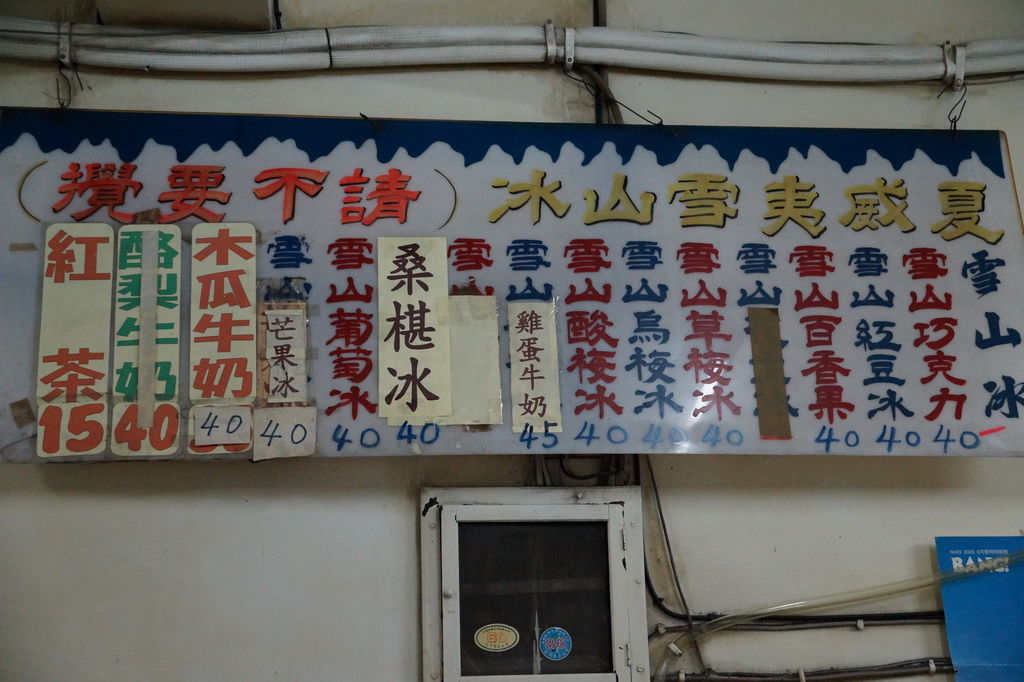 夏威夷雪山冰
(請不要攪)
雪山冰
雪山巧克力 40
雪山紅豆冰 40
雪山百香果 40
雪山
雪山草梅冰 40
雪山烏梅冰 40
雪山酸梅冰 40
雪山
雞蛋牛奶 45
雪
桑椹冰 40
雪山葡萄冰 40
雪
芒果冰 40
木瓜牛奶 40
酪梨牛奶 40
紅茶 15
BANG!